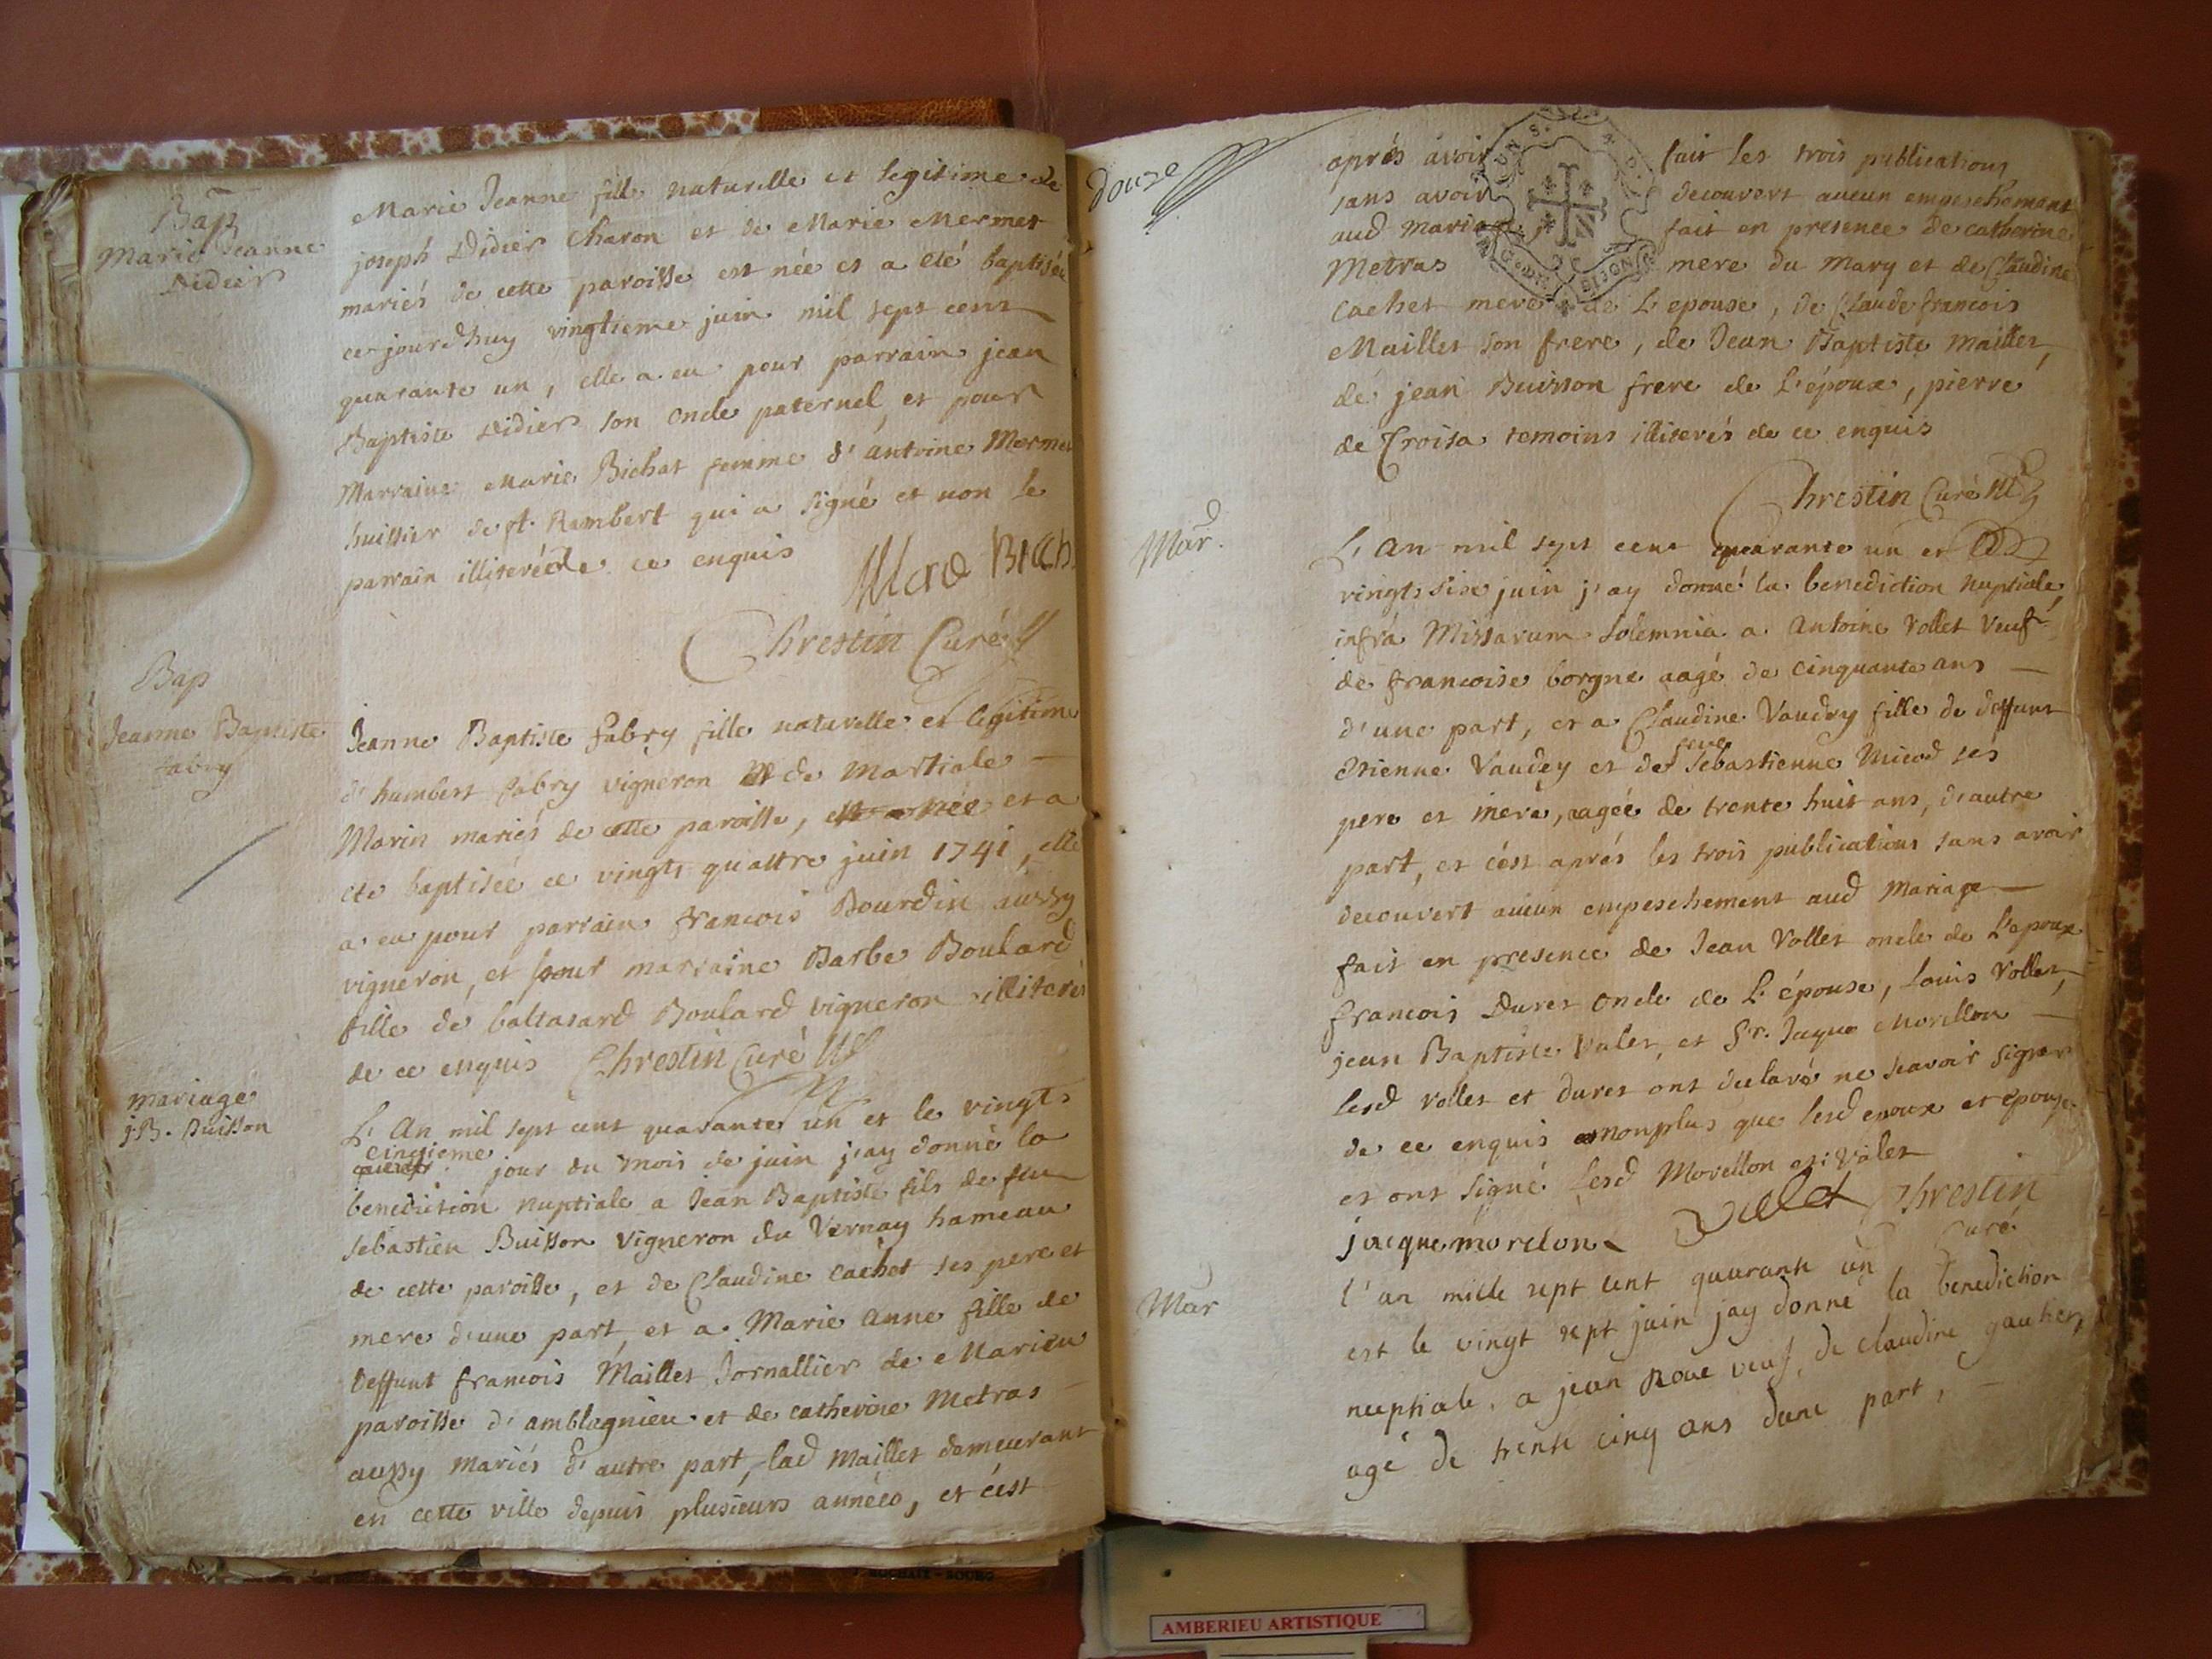 Bap
Marie Jeanne
Didier
Marie Jeanne fille naturelle et legitime de
joseph Didier Charon et de Marie Mermet
mariés de cette paroisse est née et a eté baptisée
ce jourdhuy vingtieme juin mil sept cent
quarante un, elle a eu pour parrain jean
Baptiste Didier son oncle paternel, et pour
Marraine Marie Bichat femme d'antoine Mermet
huissier de st. Rambert qui a signé et non le
parrain illiteré de ce enquis
Chrestin Curé
Bap
Jeanne Baptiste
fabry
Jeanne Baptiste fabry fille naturelle et legitime
d'humbert fabry vigneron et de Martiale
Marin mariés de cette paroisse, est née et a
eté baptisée ce vingts quattre juin 1741, elle
a eu pour parrain francois Bourdin aussy
vigneron, et pour marraine Barbe Boulard
fille de baltasard Boulard vigneron illiterés
de ce enquis Chrestin Curé
mariage
j.B. Buisson
L'An mil sept cent quarante un et le vingts
cinqieme
jour du mois de juin j'ay donné la
benediction nuptiale a Jean Baptiste fils de feu
sebastien Buisson vigneron du Vernay hameau
de cette paroisse, et de Claudine cachet ses pere et
mere d'une part, et a Marie Anne fille de
deffunt francois Maillet Jornallier de Marieu
paroisse d'amblagnieu et de catherine Metras
aussy mariés d'autre part, lad Maillet demeurant
en cette ville depuis plusieurs années, et c'est
douze
aprés avoir fait les trois publications
sans avoir decouvert aucun empeschemant
aud mariage fait en presence de catherine
Metras mere du mary et de Claudine
cachet mere de L'epouse, de Claude francois
Maillet son frere, de Jean Baptiste Maillet,
de jean Buisson frere de L'époux, pierre
de Troisa temoins illiterés de ce enquis
Chrestin Curé
Mar.
L'An mil sept cent quarante un et le
vingts six juin j'ay donné la benediction nuptiale
infra Missarum solemnia a Antoine Vollet veuf
de francoise borgne aagé de cinquante ans
d'une part, et a Claudine Vaudey fille de deffunt
Etienne Vaudey et de feue Sebastienne Micod ses
pere et mere, aagée de trente huit ans, d'autre
part, et c'est aprés les trois publications sans avoir
decouvert aucun empeschement aud Mariage
fait en presence de Jean Vollet oncle de L'epoux
francois Duret oncle de L'épouse, Louis Vollet,
jean Baptiste Valet, et Sr. Jaque Morellon
lesd Vollet et Duret ont declaré ne scavoir signer
de ce enquis nonplus que lesd epoux et epouse
et ont signé lesd Morellon et Valet
jacque morelon Vallet Chrestin
Curé
Mar
l'an mille sept cent quarante un
est le vingt sept juin jay donné la benediction
nuptiale, a jean Roue veuf, de claudine gautier
agé de trente cinq ans dune part,
AMBERIEU ARTISTIQUE